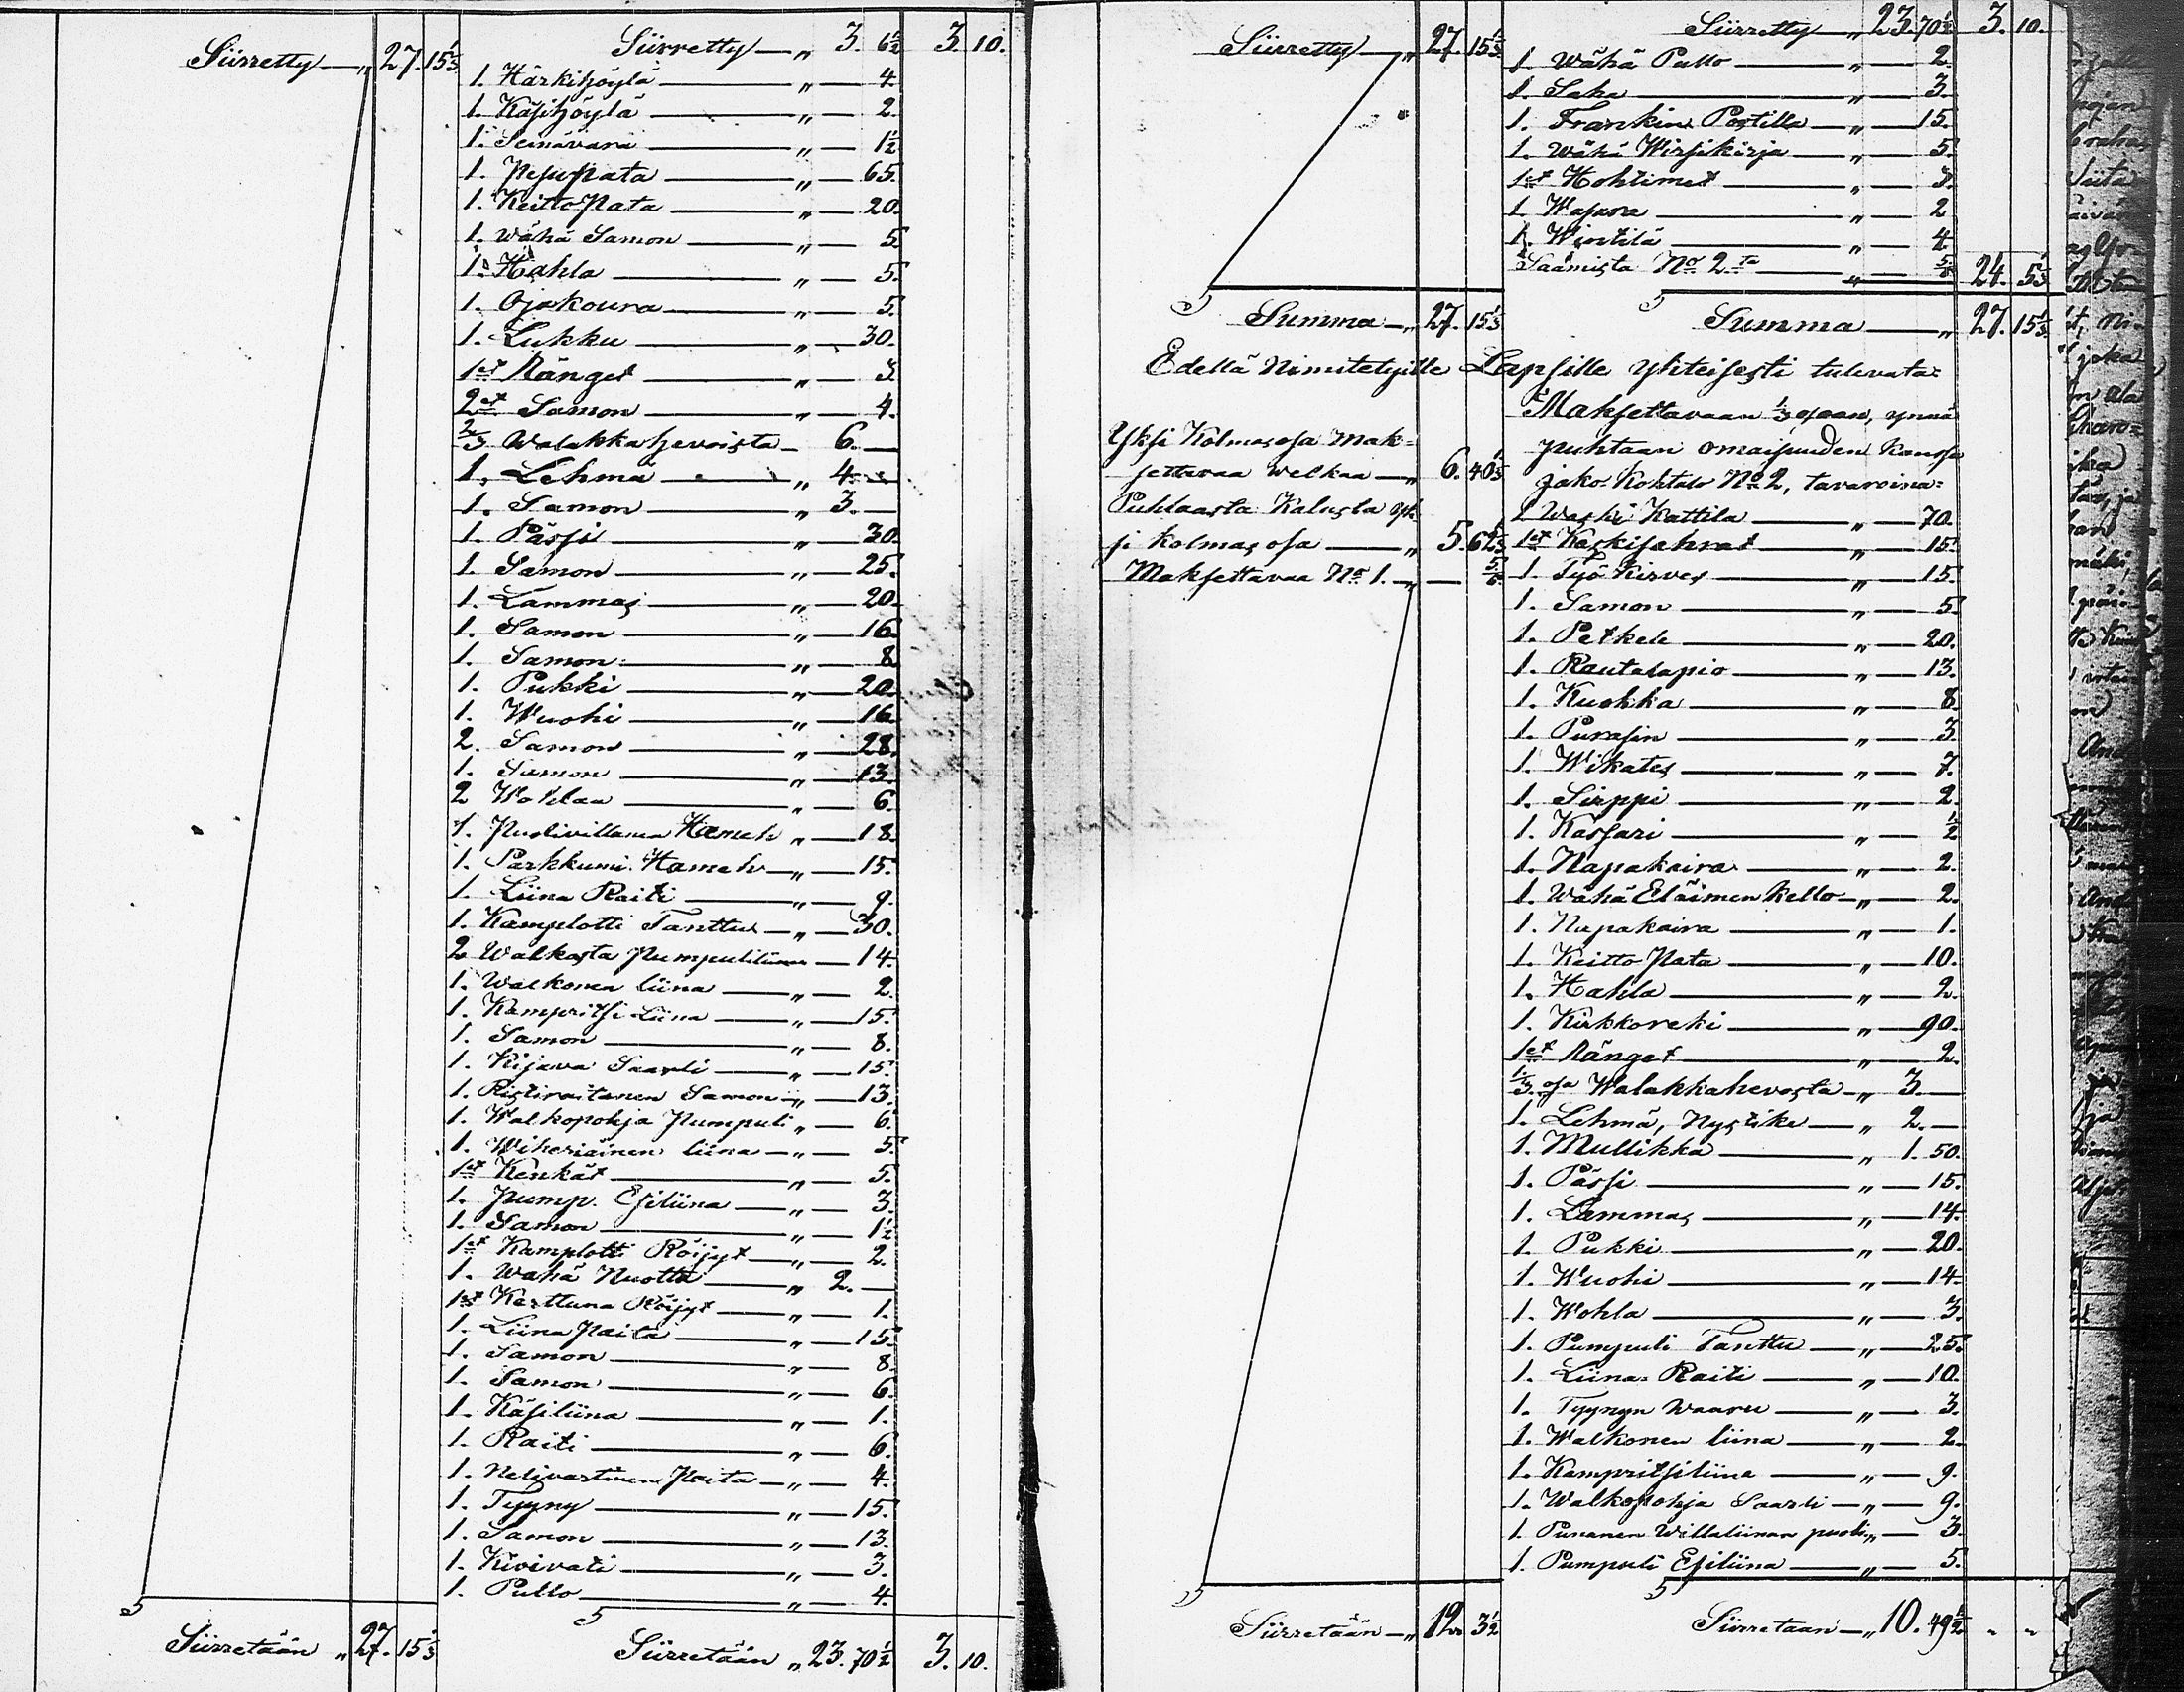 Siirretty — „ 27. 15⅓
Siirretty — „ 3. 6½ 3. 10.
1. Härkihöylä — „ — 4.
1. Käsihöylä — „ — 2.
1. Seinävara — „ — 1½
1. Pesupata — „ — 65.
1. Keitto Pata — „ — 20.
1. Wähä Samon — „ — 5.
1. Hahla — „ — 5.
1. Ojakoura — „ — 5.
1. Lukku — „ — 30.
1et Länget — „ — 3.
2et Samon — „ — 4.
⅔ Walakka hevoista — 6. —
1. Lehmä — „ 4. —
1. Samon — „ 3. —
1. Pässi — „ — 30.
1. Samon — „ — 25.
1. Lammas — „ — 20.
1. Samon — „ — 16.
1. Samon — „ — 8.
1. Pukki — „ — 20.
1. Wuohi — „ — 16.
2. Samon — „ — 28.
1. Samon — „ — 13.
2 Wohlaa — „ — 6.
1. Puolivillanen Hameh „ — 18.
1. Parkkumi Hameh — „ — 15.
1. Liina Raiti — „ — 9.
1. Kamplotti Tanttu — „ — 30.
2 Walkosta Pumpuliliinaa — 14.
1. Walkonen liina — „ — 2.
1. Kampritsi Liina — „ — 15.
1. Samon — „ — 8.
1. Kijava Saarli — „ — 15.
1. Ristiraitanen Samon — „ — 13.
1. Walkopohja Pumpuli „ — 6.
1. Wiheriäinen liina — „ — 5.
1et Kenkät — „ — 5.
1. Pump. Esiliina — „ — 3.
1. Samon — „ — 1½
1et Kamplotti Röijyt — „ — 2.
1. Wähä Nuotta — „ 2. —
1et Kerttuna Röijyt — „ — 1.
1. Liina Paita — „ — 15.
1. Samon — „ — 8.
1. Samon — „ — 6.
1. Käsiliina — „ — 1.
1. Raiti — „ — 6.
1. Nelivartinen Paita — „ — 4.
1. Tyyny — „ — 15.
1. Samon — „ — 13.
1. Kivivati — „ — 3.
1. Pullo — „ — 4.
Siirretään „ 27. 15⅓
Siirretään „ 23. 70½ 3. 10.
Siirretty — „ 27. 15⅓
Siirretty — „ 23. 70½ 3. 10.
1. Wähä Pullo — „ — 2.
1. Saha — „ — 3.
1. Frankin Postilla — „ — 15.
1. Wähä Wirsikirja — „ — 5.
1et Hohtimet — „ — 3.
1. Wasara — „ — 2
1. Wintilä — „ — 4
Saamista No 2ta — „ — ⅚ 24. 5⅓
Summa — „ 27. 15⅓
Summa — „ 27. 15⅓
Edellä Nimitetyille Lapsille yhteisesti tulevata
Yksi Kolmasosa Mak=
settavaa welkaa — „ 6. 40⅓
Puhtaasta Kalusta yk=
si Kolmas osa — „ 5. 62⅓
Maksettavaa No 1. „ — ⅚
Maksettavaan ⅓ osaan, ynnä
puhtaan omaisuuden kanssa
jako Kohtalo No 2, tavaroina=
1 Waski Kattila — „ — 70.
1et Kaskisahrat — „ — 15.
1. Työ Kirves — „ — 15.
1. Samon — „ — 5.
1. Petkele — „ — 20.
1. Rautalapio — „ — 13.
1. Kuokka — „ — 8.
1. Purasin — „ — 3.
1. Wikates — „ — 7.
1. Sirppi — „ — 2.
1. Kassari — „ — ½
1. Napakaira — „ — 2.
1. Wähä Eläimen Kello — „ — 2.
1. Napakaira — „ — 1.
1. Keitto Pata — „ — 10.
1. Hahla — „ — 2.
1. Kirkkoreki — „ — 90.
1et Länget — „ — 2.
⅓ osa Walakkahevosta — „ 3. —
1. Lehmä, Nystike — „ 2. —
1. Mullikka — „ 1. 50.
1. Pässi — „ — 15.
1. Lammas — „ — 14.
1. Pukki — „ — 20.
1. Wuohi — „ — 14.
1. Wohla — „ — 3.
1. Pumpuli Tanttu — „ — 25.
1. Liina Raiti — „ — 10.
1. Tyynyn Waaru — „ — 3.
1. Walkonen liina — „ — 2.
1. Kampritsiliina — „ — 9.
1. Walkopohja Saarli — „ — 9.
1. Punanen Willaliinan puoli „ — 3.
1. Pumpuli Esiliina — „ — 5.
Siirretään — „ 12. 3½
Siirretään — „ 10. 49½ „ „